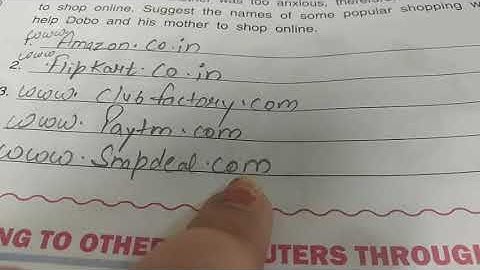 was too anxious, therefore,
to shop online. Suggest the names of some popular shopping w
help Dobo and his mother to shop online.
1. www. Amazon.co.in
2. www. flipkart.co.in
3. www. Club-factory.com
www. Paytm.com
www. Snapdeal.com
NG TO OTHE UTERS THROUG